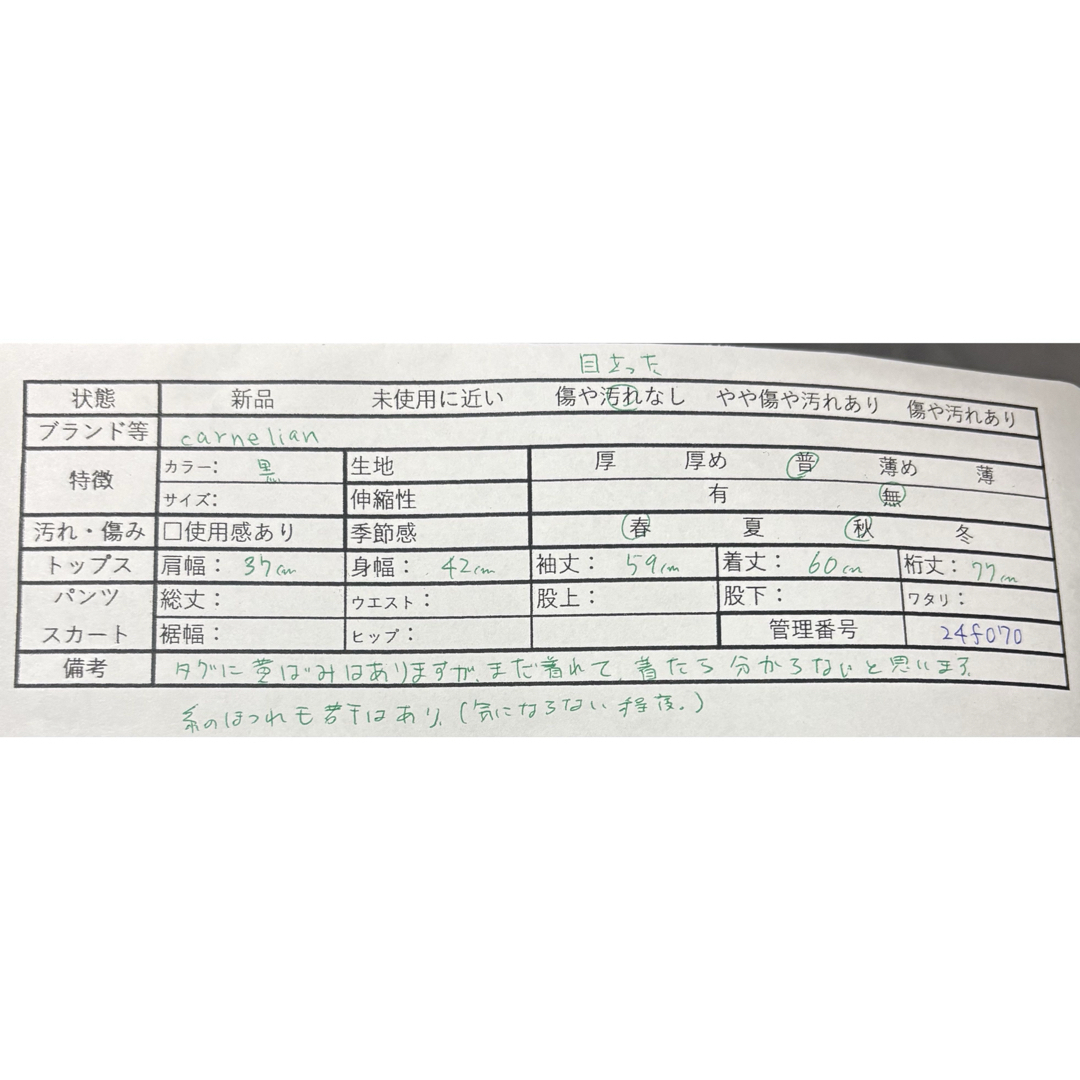 目立った
状態 新品 未使用に近い 傷や汚れなし やや傷や汚れあり 傷や汚れあり
ブランド等 carnelian
特徴 カラー: 黒 生地 厚 厚め 普 薄め 薄
サイズ: 伸縮性 有 無
汚れ・傷み □使用感あり 季節感 春 夏 秋 冬
トップス 肩幅: 37cm 身幅: 42cm 袖丈: 59cm 着丈: 60cm 裄丈: 77cm
パンツ 総丈: ウエスト: 股上: 股下: ワタリ:
スカート 裾幅: ヒップ: 管理番号 24f070
備考 タグに黄ばみはありますが、まだ着れて、着たら分からないと思います。
糸のほつれも若干はあり。(気にならない程度。)